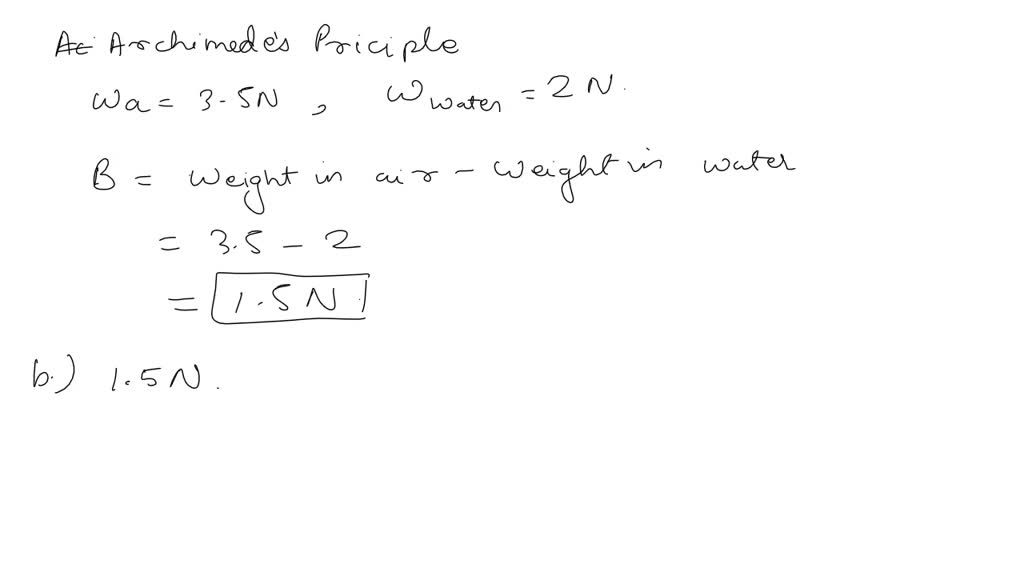 Ac Archimede's Priciple
Wa = 3.5N , W water = 2 N.
B = Weight in air - Weight in water
= 3.5 - 2
= 1.5 N.
b.) 1.5 N.